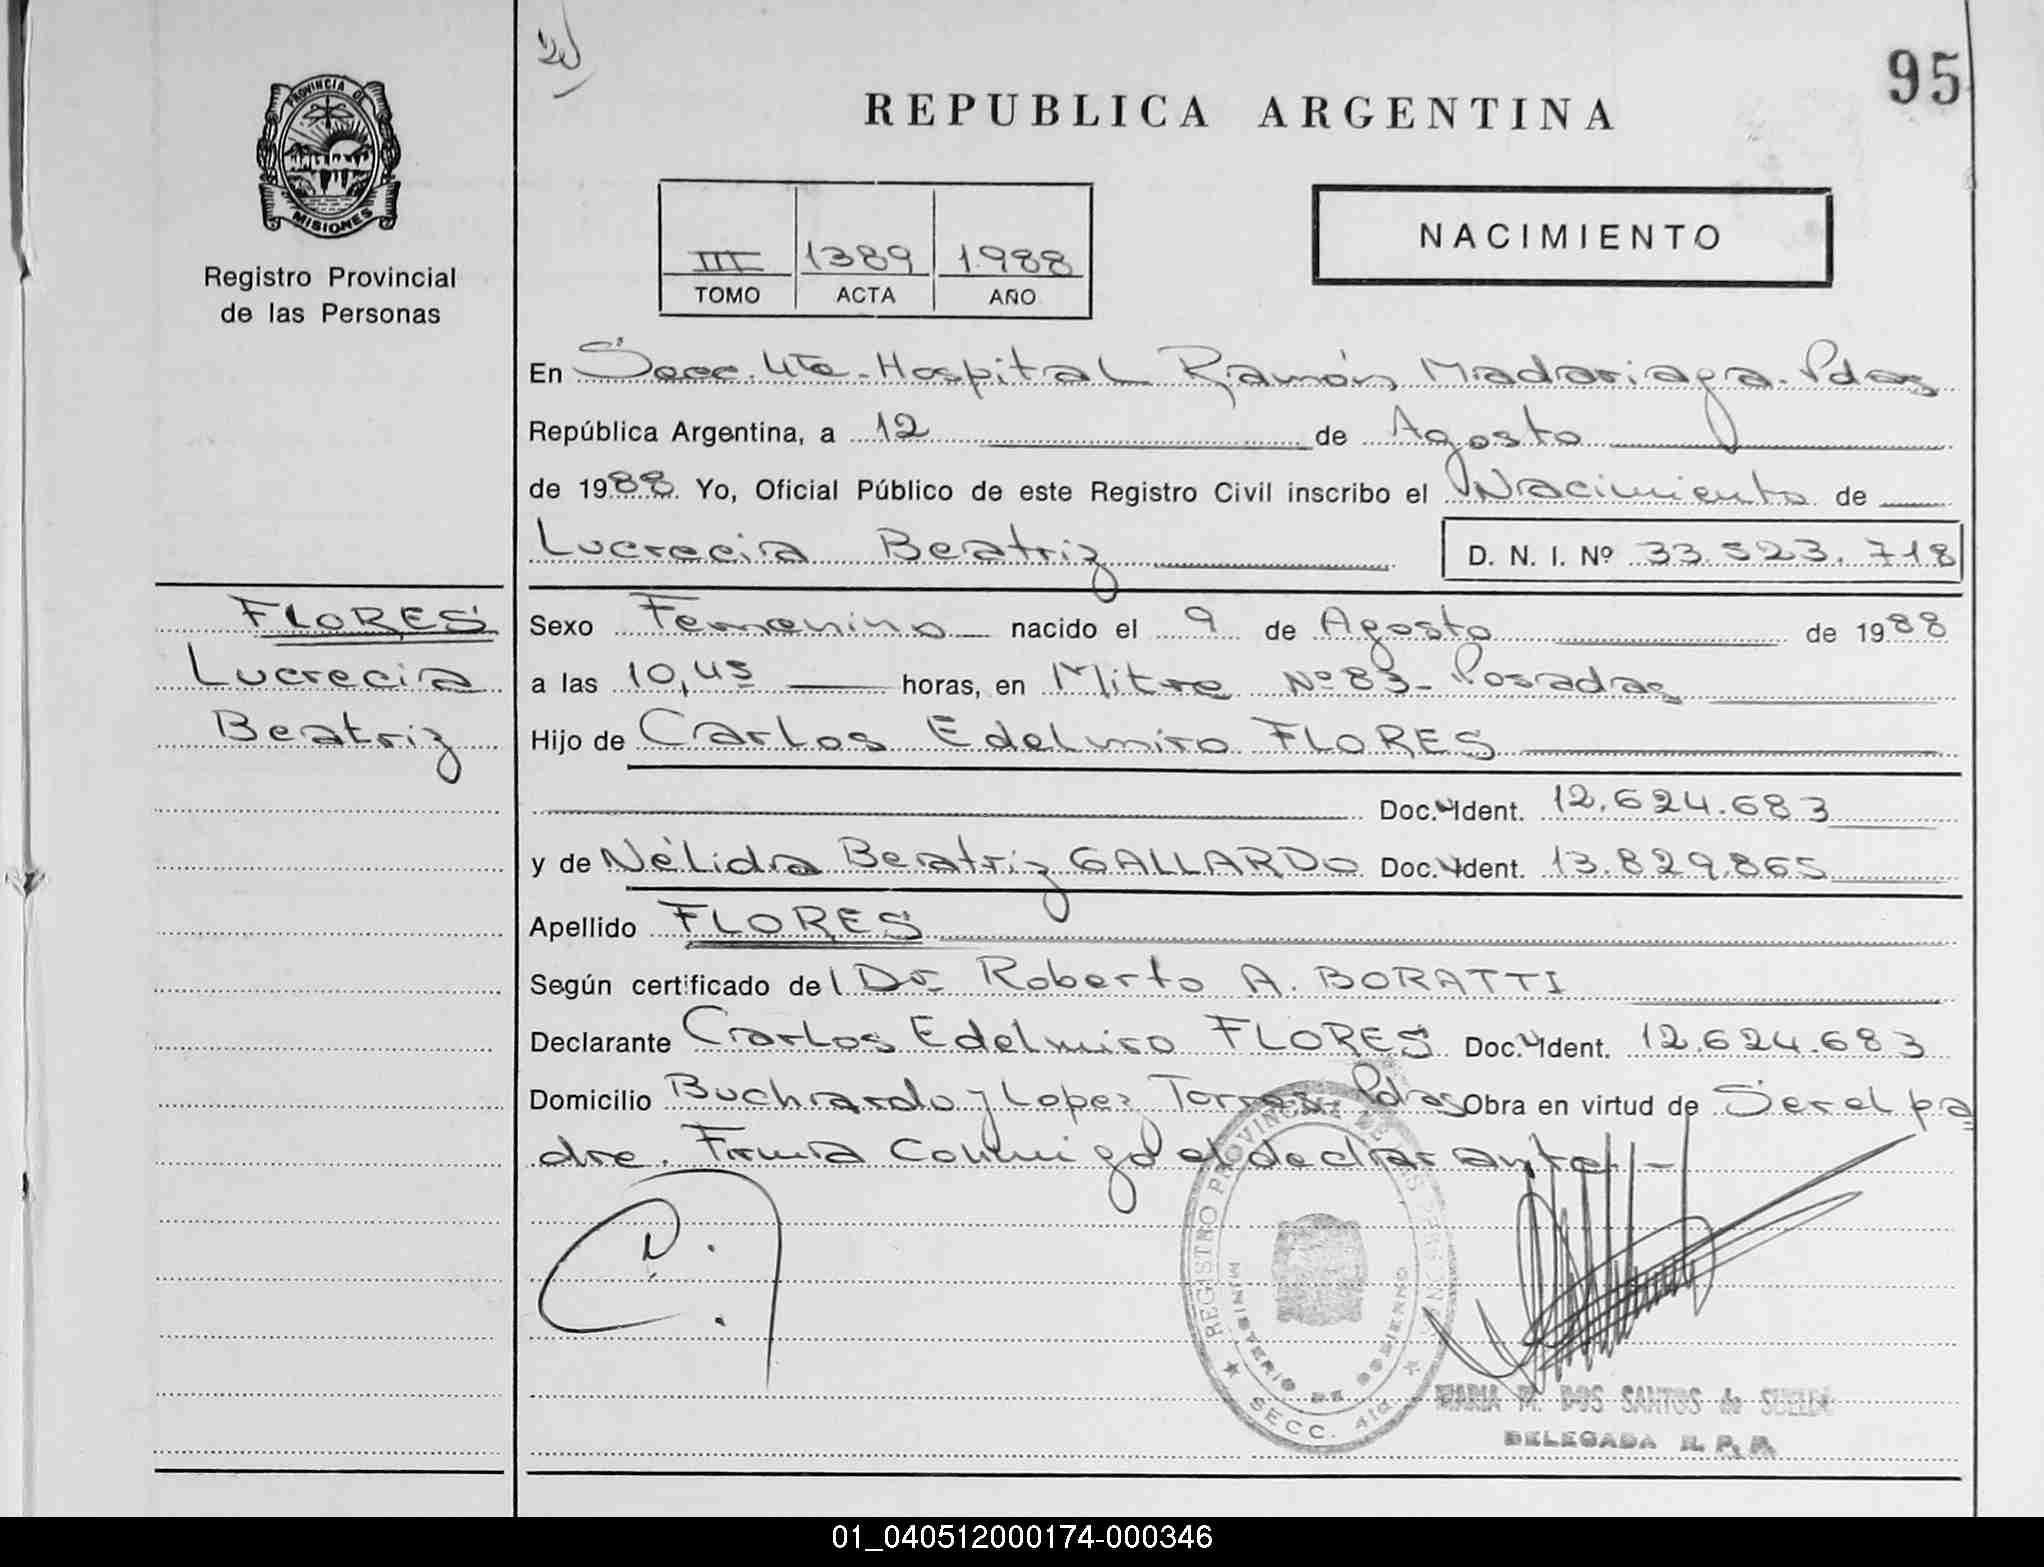 95
REPUBLICA ARGENTINA
PROVINCIA DE
MISIONES
Registro Provincial
de las Personas
III 1389 1.988
TOMO ACTA AÑO
NACIMIENTO
En Secc. 4ta. Hospital Ramón Madariaga. Pdas
República Argentina, a 12 de Agosto
de 1988. Yo, Oficial Público de este Registro Civil inscribo el Nacimiento de
Lucrecia Beatriz D. N. I. Nº 33.523.718
FLORES
Lucrecia
Beatriz
Sexo Femenino nacido el 9 de Agosto de 1988
a las 10,45 horas, en Mitre Nº 83 - Posadas
Hijo de Carlos Edelmiro FLORES
Doc. Ident. 12.624.683
y de Nélida Beatriz GALLARDO Doc. Ident. 13.829.865
Apellido FLORES
Según certificado del Dr. Roberto A. BORATTI
Declarante Carlos Edelmiro FLORES Doc. Ident. 12.624.683
Domicilio Buchardo y Lopez Torres - Pdas Obra en virtud de Ser el pa
dre. Firma conmigo el declarante. -
REGISTRO PROVINCIAL DE LAS PERSONAS
MINISTERIO DE GOBIERNO
SECC. 4ta.
MARIA M. DOS SANTOS de SUELDO
DELEGADA R. P. P.
01_040512000174-000346